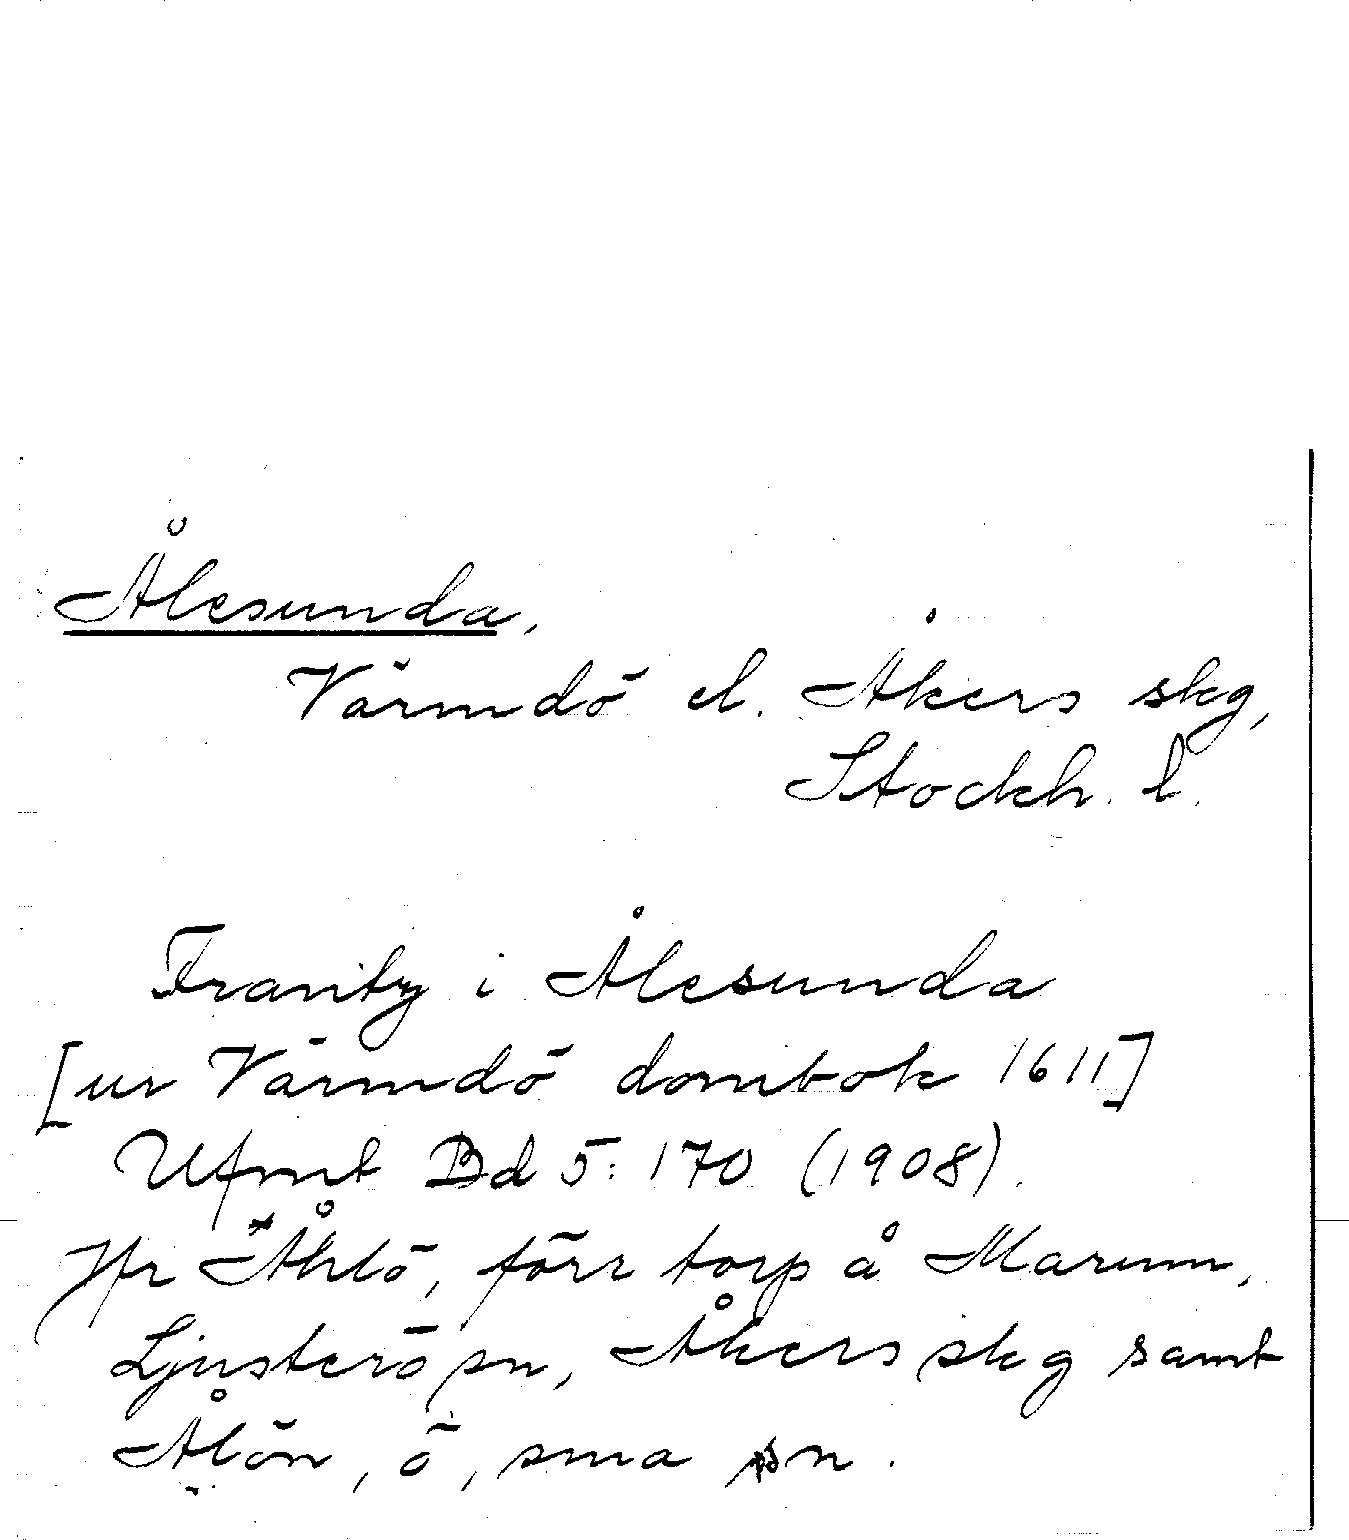 Ålesunda,
Värmdö el. Åkers skg,
Stockh. l.
Frantz i Ålesunda
[ur Värmdö dombok 1611]
Ufmt Bd 5: 170 (1908).
Jfr Åhlö, förr torp å Marum,
Ljusterö sn, Åkers skg samt
Ålön, ö, sma sn.